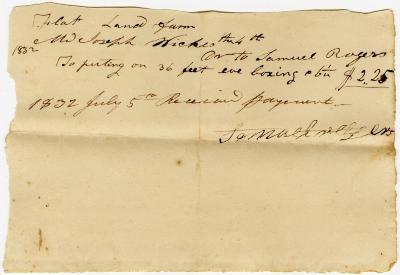 Flat Land Farm
Mr Joseph Wickes the 4th
1832 Dr to Samuel Rogers
To puting on 36 feet eve boxing &c $2.25
1832 July 5th Received payment
Samuel Rogers